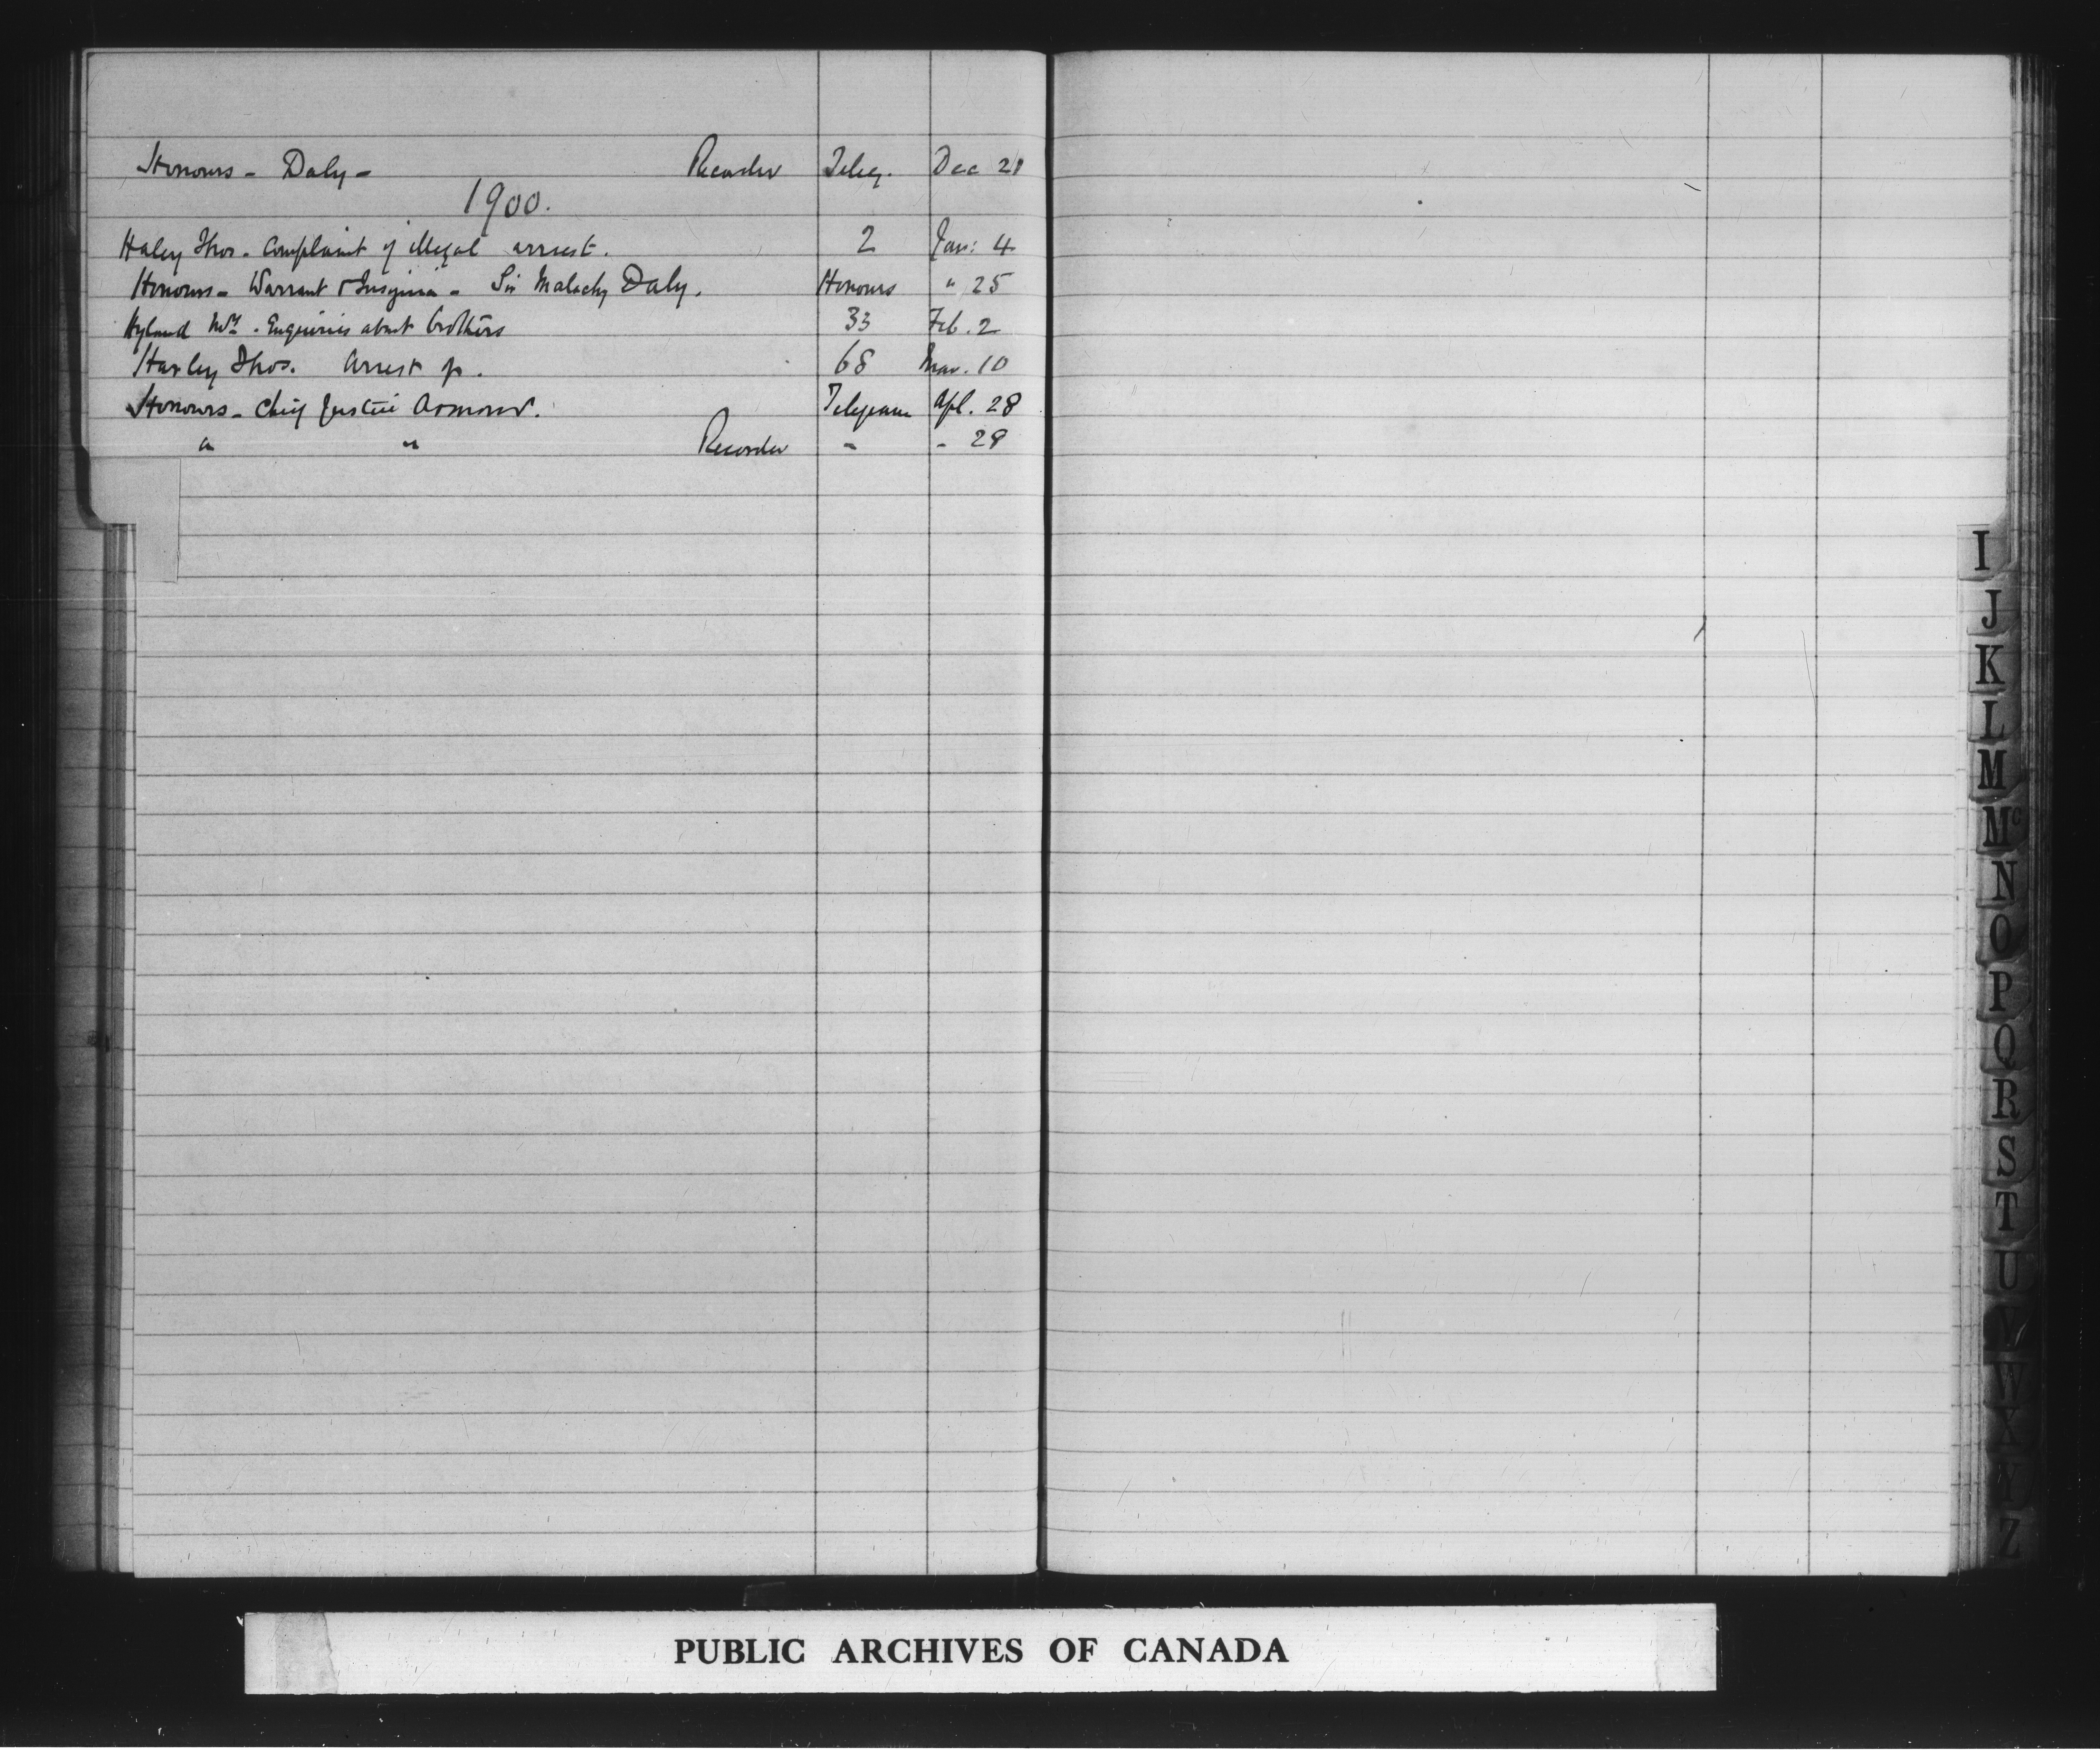 Honours - Daly - Recorder Teleg. Dec 21
1900.
Haley Thos. Complaint of illegal arrest. 2 Jan: 4
Honours - Warrant & Insignia - Sir Malachy Daly. Honours " 25
Hyland Wm. Enquiries about brothers 33 Feb. 2
Harley Thos. Arrest of. 68 Mar. 10
Honours - Chief Justice Armour. Telegram Apl. 28
" " Recorder " " 28
I
J
K
L
M
Mc
N
O
P
Q
R
S
T
U
V
W
X
Y
Z
PUBLIC ARCHIVES OF CANADA